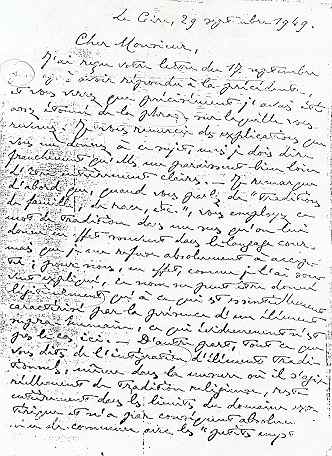 Le Caire, 29 septembre 1949.
Cher Monsieur,
J'ai reçu votre lettre du 17 septembre
après avoir répondu à la précédente,
et vous verrez que précisément j'avais été
assez étonné de la phrase sur laquelle vous
revenez. Je vous remercie des explications que
vous me donnez à ce sujet, mais je dois dire
franchement qu'elles me paraissent bien loin
d'être entièrement claires. — Je remarque
d'abord que, quand vous parlez de "traditions
de famille, de race, etc.", vous employez ce
mot de tradition dans un sens qu'on lui
donne en effet souvent dans le langage courant
mais que je me refuse absolument à accep-
ter; pour nous, en effet, comme je l'ai sou-
vent expliqué, ce nom ne peut être donné
légitimement qu'à ce qui est essentiellement
caractérisé par la présence d'un élément
supra-humain, ce qui évidemment n'est
pas le cas ici. — D'autre part, tout ce que
vous dites de l'intégration d'éléments tradi-
tionnels, même dans la mesure où il s'agirait
réellement de tradition religieuse, reste
entièrement dans les limites du domaine exo-
térique et n'a par conséquent absolu-
ment rien de commun avec les "petits myst